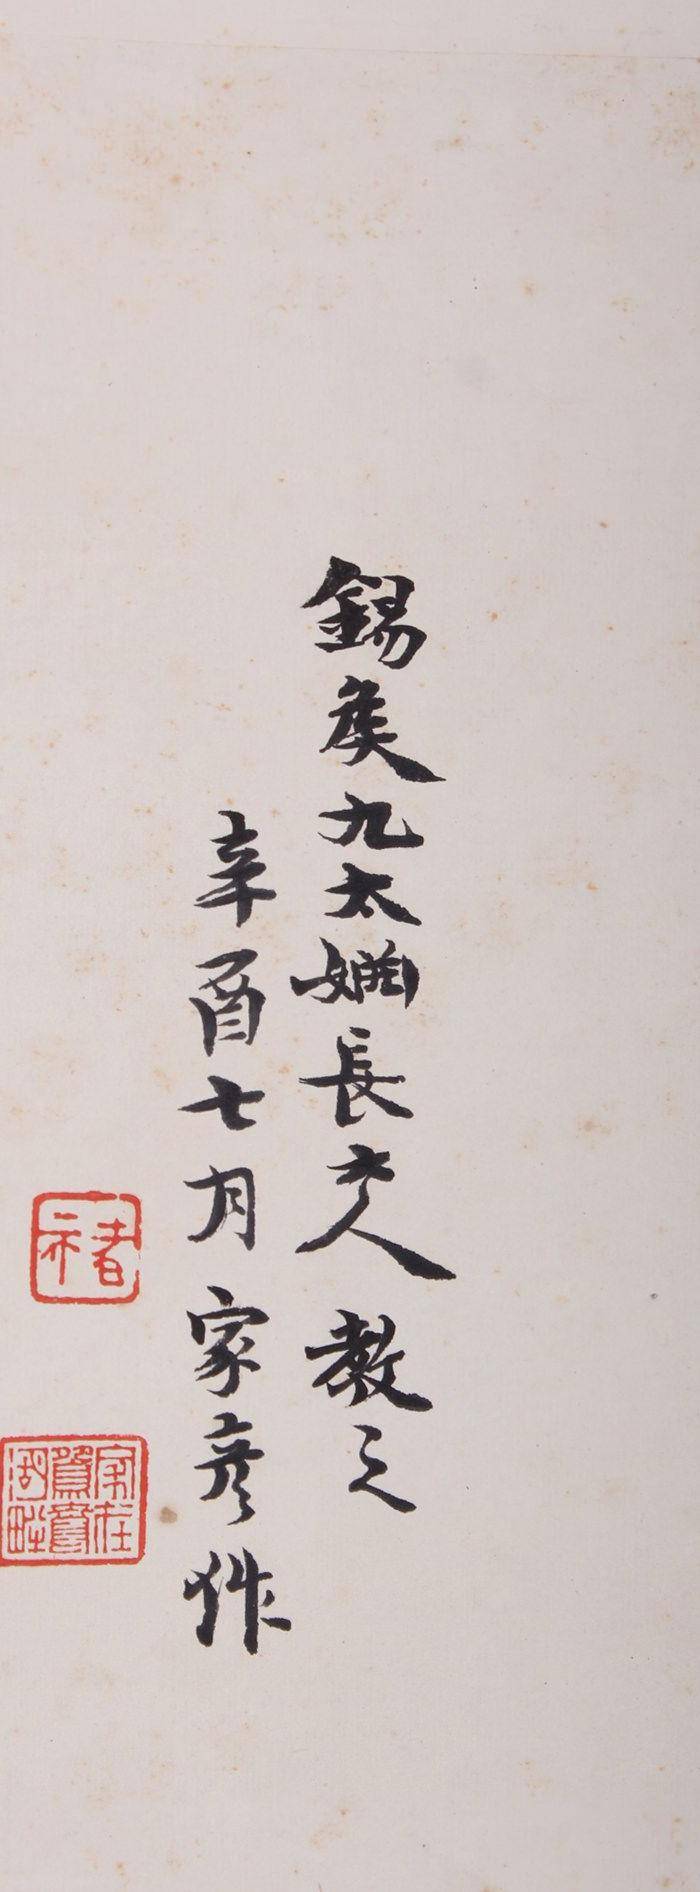 錫侯九太姻長大人教之
辛酉七月家彥作
褚
家在鴛鴦湖畔